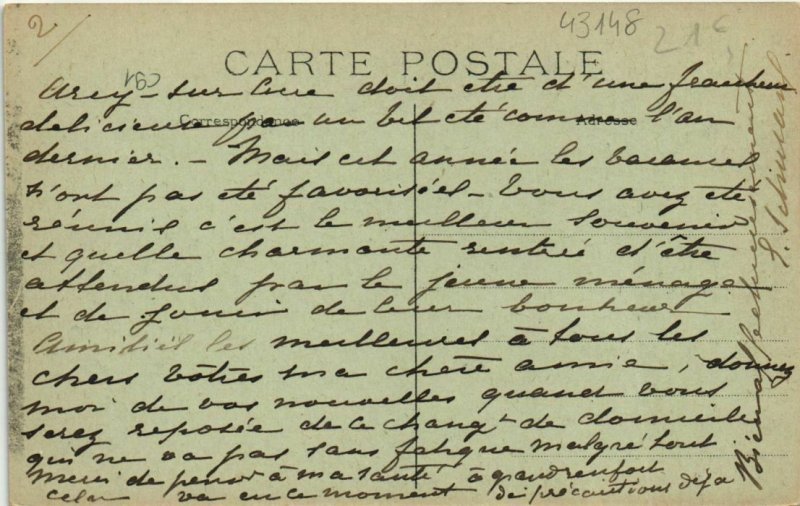 2
43148
216
CARTE POSTALE
Correspondance
Adresse
Arcy-sur-Cure doit être d'une fraicheur
delicieuse par un bel été comme l'an
dernier. - Mais cet année les vacances
n'ont pas été favorisées - Vous avez été
réunis c'est le meilleur souvenir
et quelle charmante rentrée d'être
attendus par le jeune ménage
et de jouir de leur bonheur
Amitiés les meilleures à tous les
chers vôtres ma chère amie, donnez
moi de vos nouvelles quand vous
serez reposée de ce changt de domicile
qui ne va pas sans fatigue malgré tout
Merci de penser à ma santé à grand renfort
de précautions déjà
cela va en ce moment
Bien affectueusement